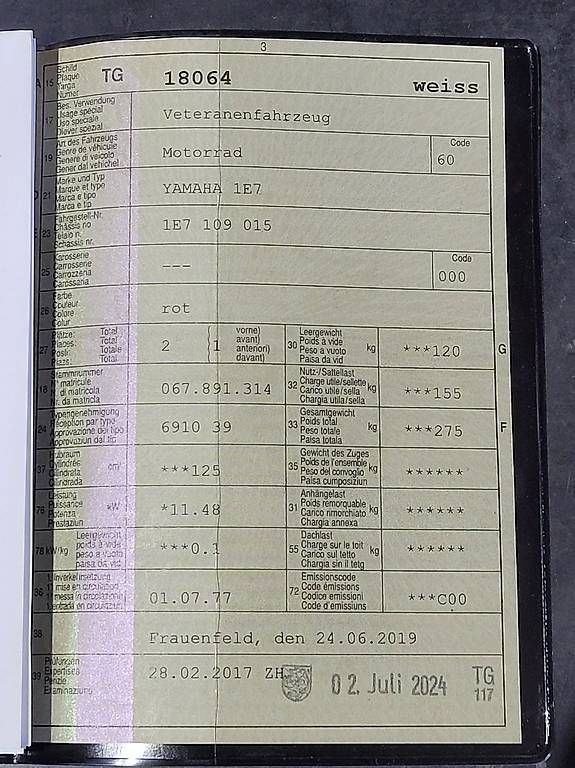 3
A 15 Schild Plaque Targa Numer TG 18064 weiss
17 Bes. Verwendung Usage spécial Uso speciale Diever spezial Veteranenfahrzeug
19 Art des Fahrzeugs Genre de véhicule Genere di veicolo Gener dal vehichel Motorrad Code 60
D 21 Marke und Typ Marque et type Marca e tipo Marca e tip YAMAHA 1E7
E 23 Fahrgestell-Nr. Châssis no Telaio n. Schassis nr. 1E7 109 015
25 Karosserie Carrosserie Carrozzeria Carossaria --- Code 000
26 Farbe Couleur Colore Colur rot
27 Plätze: Places: Posti: Plazs: Total Total Totale Total 2 (1 vorne) avant) anteriori) davant) 30 Leergewicht Poids à vide Peso a vuoto Paisa da vid kg ***120 G
18 Stammnummer N° matricule N. di matricola Nr. da matricla 067.891.314 32 Nutz-/Sattellast Charge utile/sellette Carico utile/sella Chargia utila/sella kg ***155
24 Typengenehmigung Réception par type Approvazione del tipo Approvaziun dal tip 6910 39 33 Gesamtgewicht Poids total Peso totale Paisa totala kg ***275 F
37 Hubraum Cylindrée Cilindrata Cilindrada cm³ ***125 35 Gewicht des Zuges Poids de l'ensemble Peso del convoglio Paisa cumposiziun kg ******
76 Leistung Puissance Potenza Prestaziun kW *11.48 31 Anhängelast Poids remorquable Carico rimorchiato Chargia annexa kg ******
78 kW/kg Leergewicht poids à vide peso a vuoto paisa da vid ***0.1 55 Dachlast Charge sur le toit Carico sul tetto Chargia sin il tetg kg ******
36 1. Inverkehrsetzung 1re mise en circulation 1. messa in circolazione 1. entrada en circulaziun 01.07.77 72 Emissionscode Code émissions Codice emissioni Code d'emissiuns ***C00
38 Frauenfeld, den 24.06.2019
39 Prüfungen Expertises Perizie Examinaziuns 28.02.2017 ZH 0 2. Juli 2024 TG 117